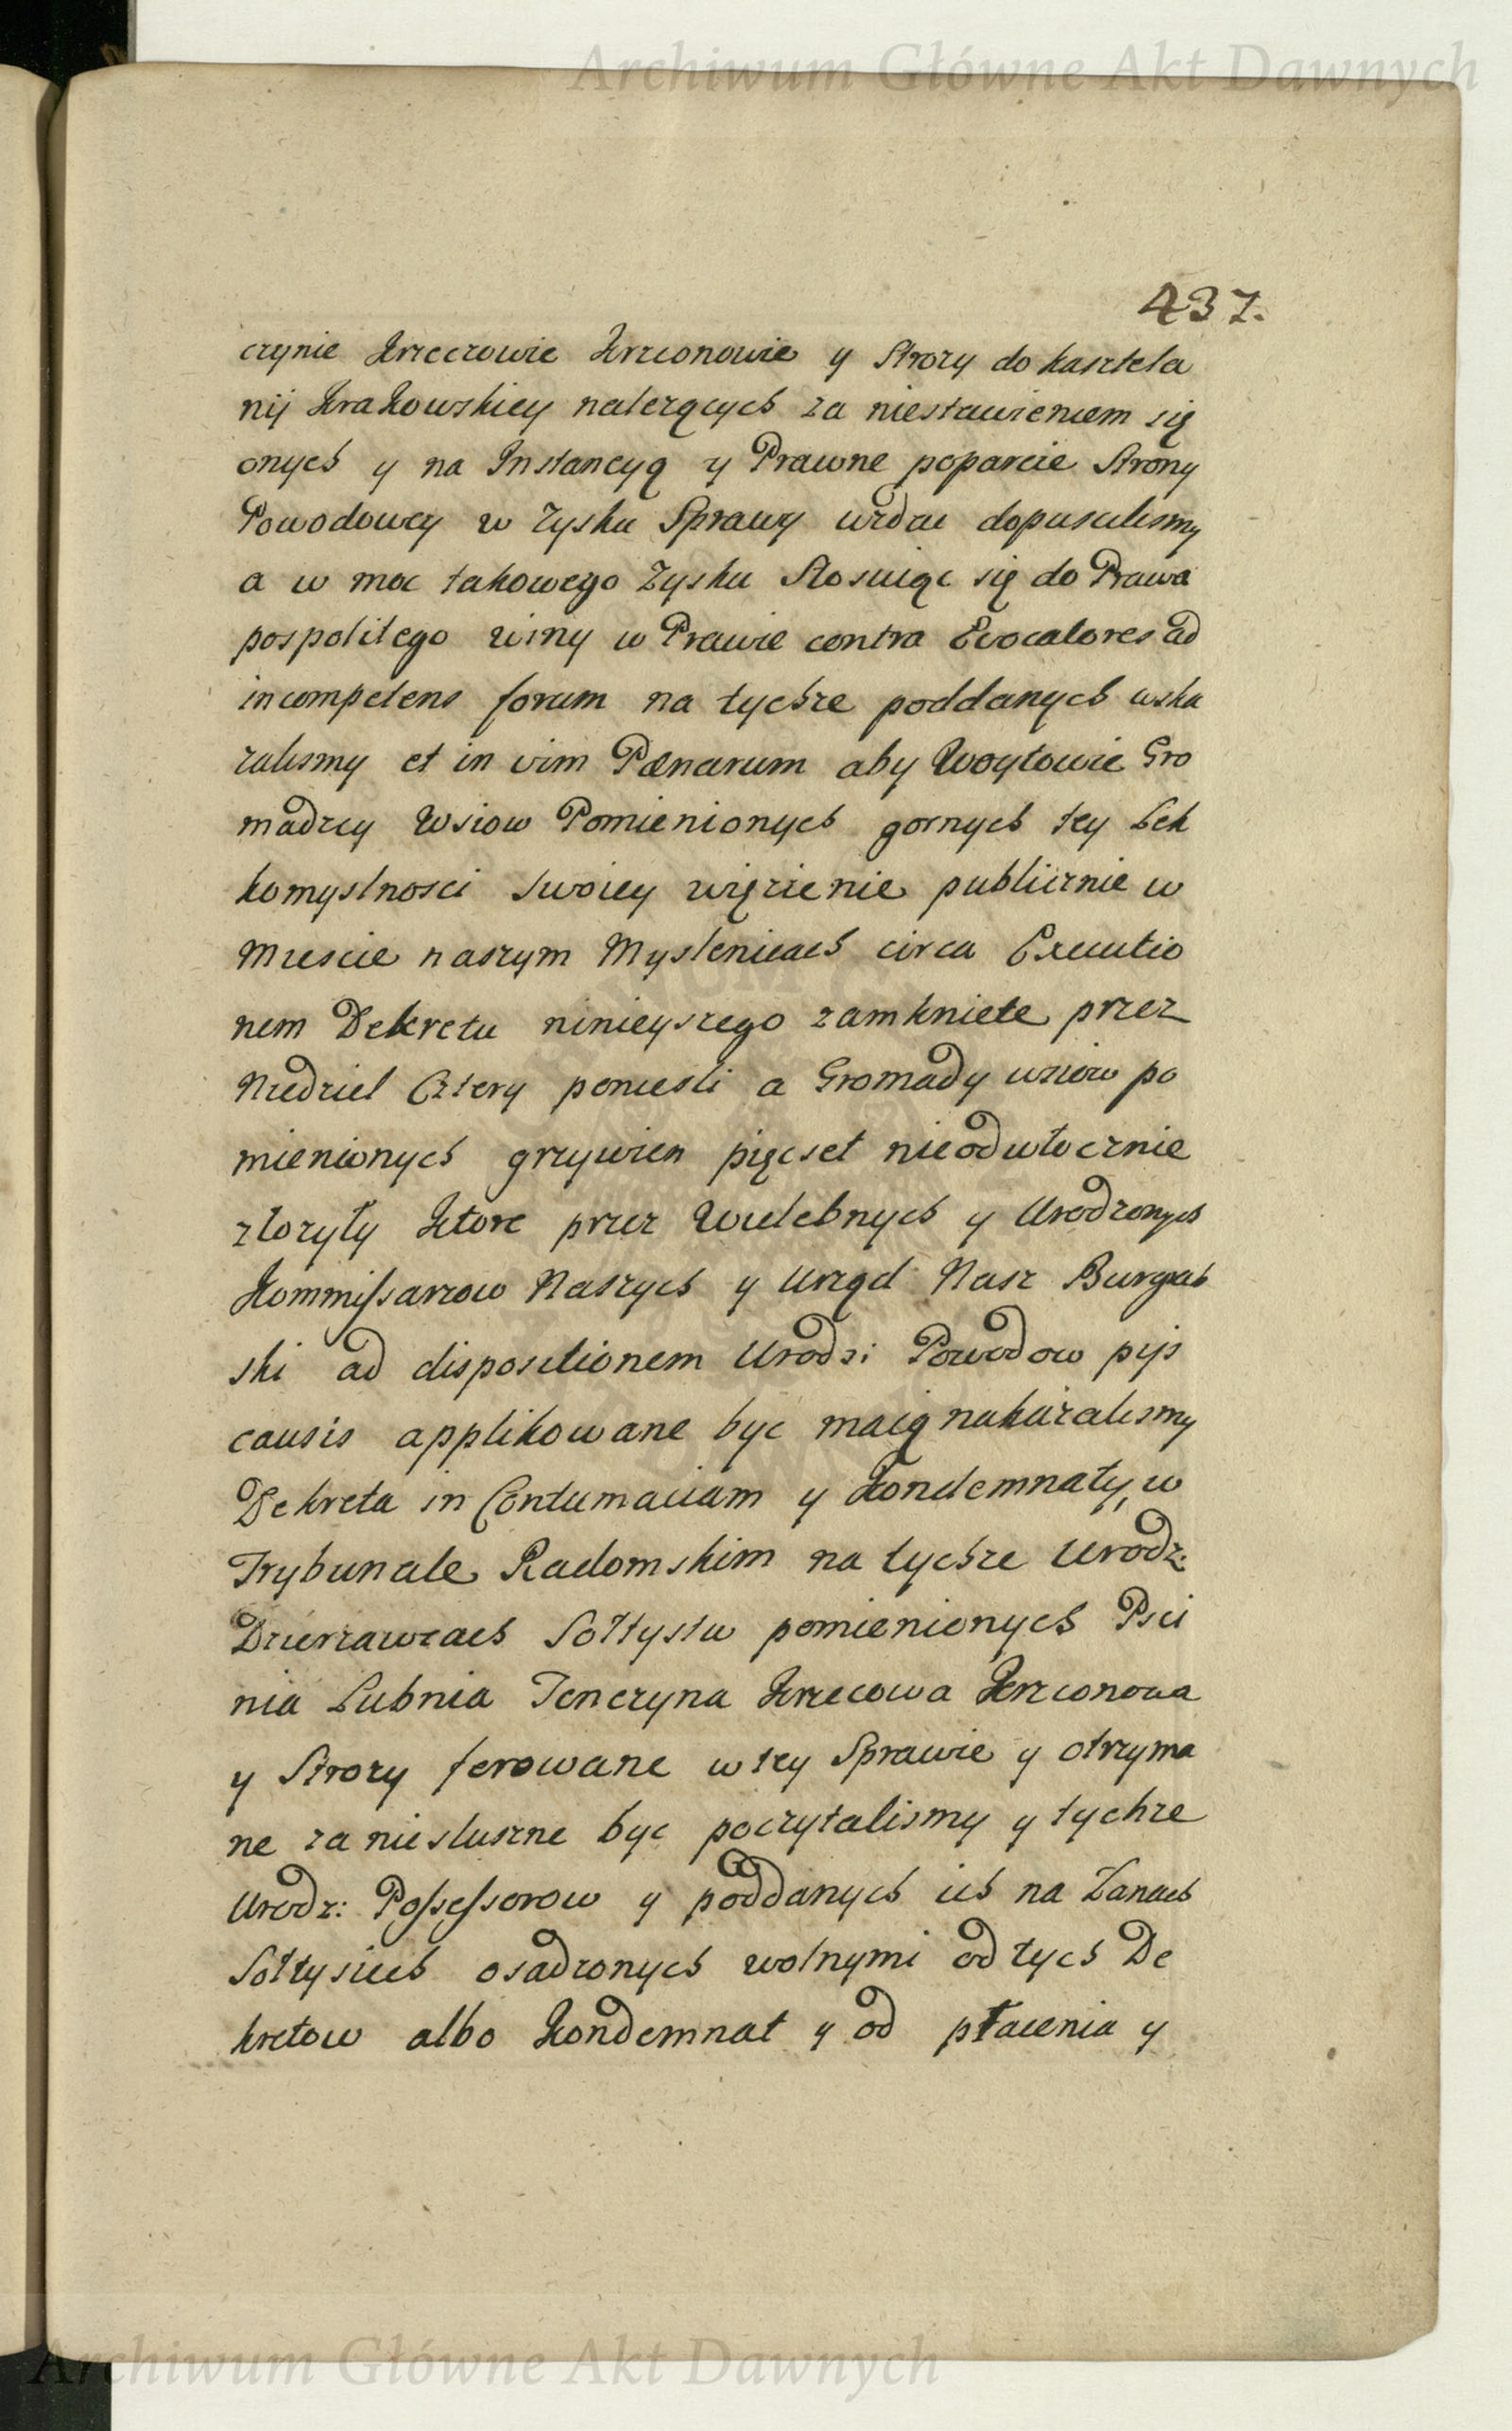 Archiwum Główne Akt Dawnych
437.
czynie Krzeczowie Krzczonowie y Strozy do kasztela
nij Krakowskiey nalezących za niestawieniem się
onych y na Instancyą y Prawne poparcie Strony
Powodowey w zysku Sprawy wzdac dopuscilismy
a w moc takowego Zysku Stosuiąc się do Prawa
pospolitego winy w Prawie contra Evocatores ad
incompetens forum na tychze poddanych wska
zalismy et in vim Pænarum aby Woytowie Gro
madzcy Wsiow Pomienionych gornych tey Lek
komyslnosci swoiey więzienie publicznie w
Miescie naszym Myslenicach circa Executio
nem Dekretu ninieyszego zamkniete przez
Niedziel Cztery poniesli a Gromady wsiow po
mienionych grzywien pięcset nieodwłocznie
zlozyły Ktore przez Wielebnych y Urodzonych
Kommissarzow Naszych y Urząd Nasz Burgrab
ski ad dispositionem Urodz: Powodow pijs
causis applikowane byc maią nakazalismy
Dekreta in Contumaciam y Kondemnaty, w
Trybunale Radomskim na tychze Urodz:
Dzierzawcach Sołtystw pomienionych Psci
nia Lubnia Tenczyna Krzecowa Krzconowa
y Strozy ferowane w tey Sprawie y otrzyma
ne za niesluszne byc poczytalismy y tychze
Urodz: Possessorow y poddanych ich na Łanach
Sołtysich osadzonych wolnymi od tych De
kretow albo Kondemnat y od płacenia y
Archiwum Główne Akt Dawnych